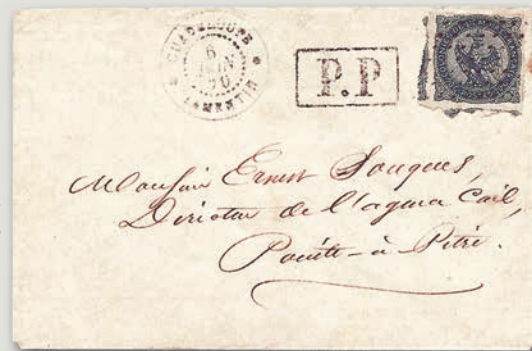 GUADELOUPE
6
JUIN
70
LAMENTIN
P.P
Monsieur Ernest Souques,
Directeur de l'agma Cail,
Pointe-à-Pitre.